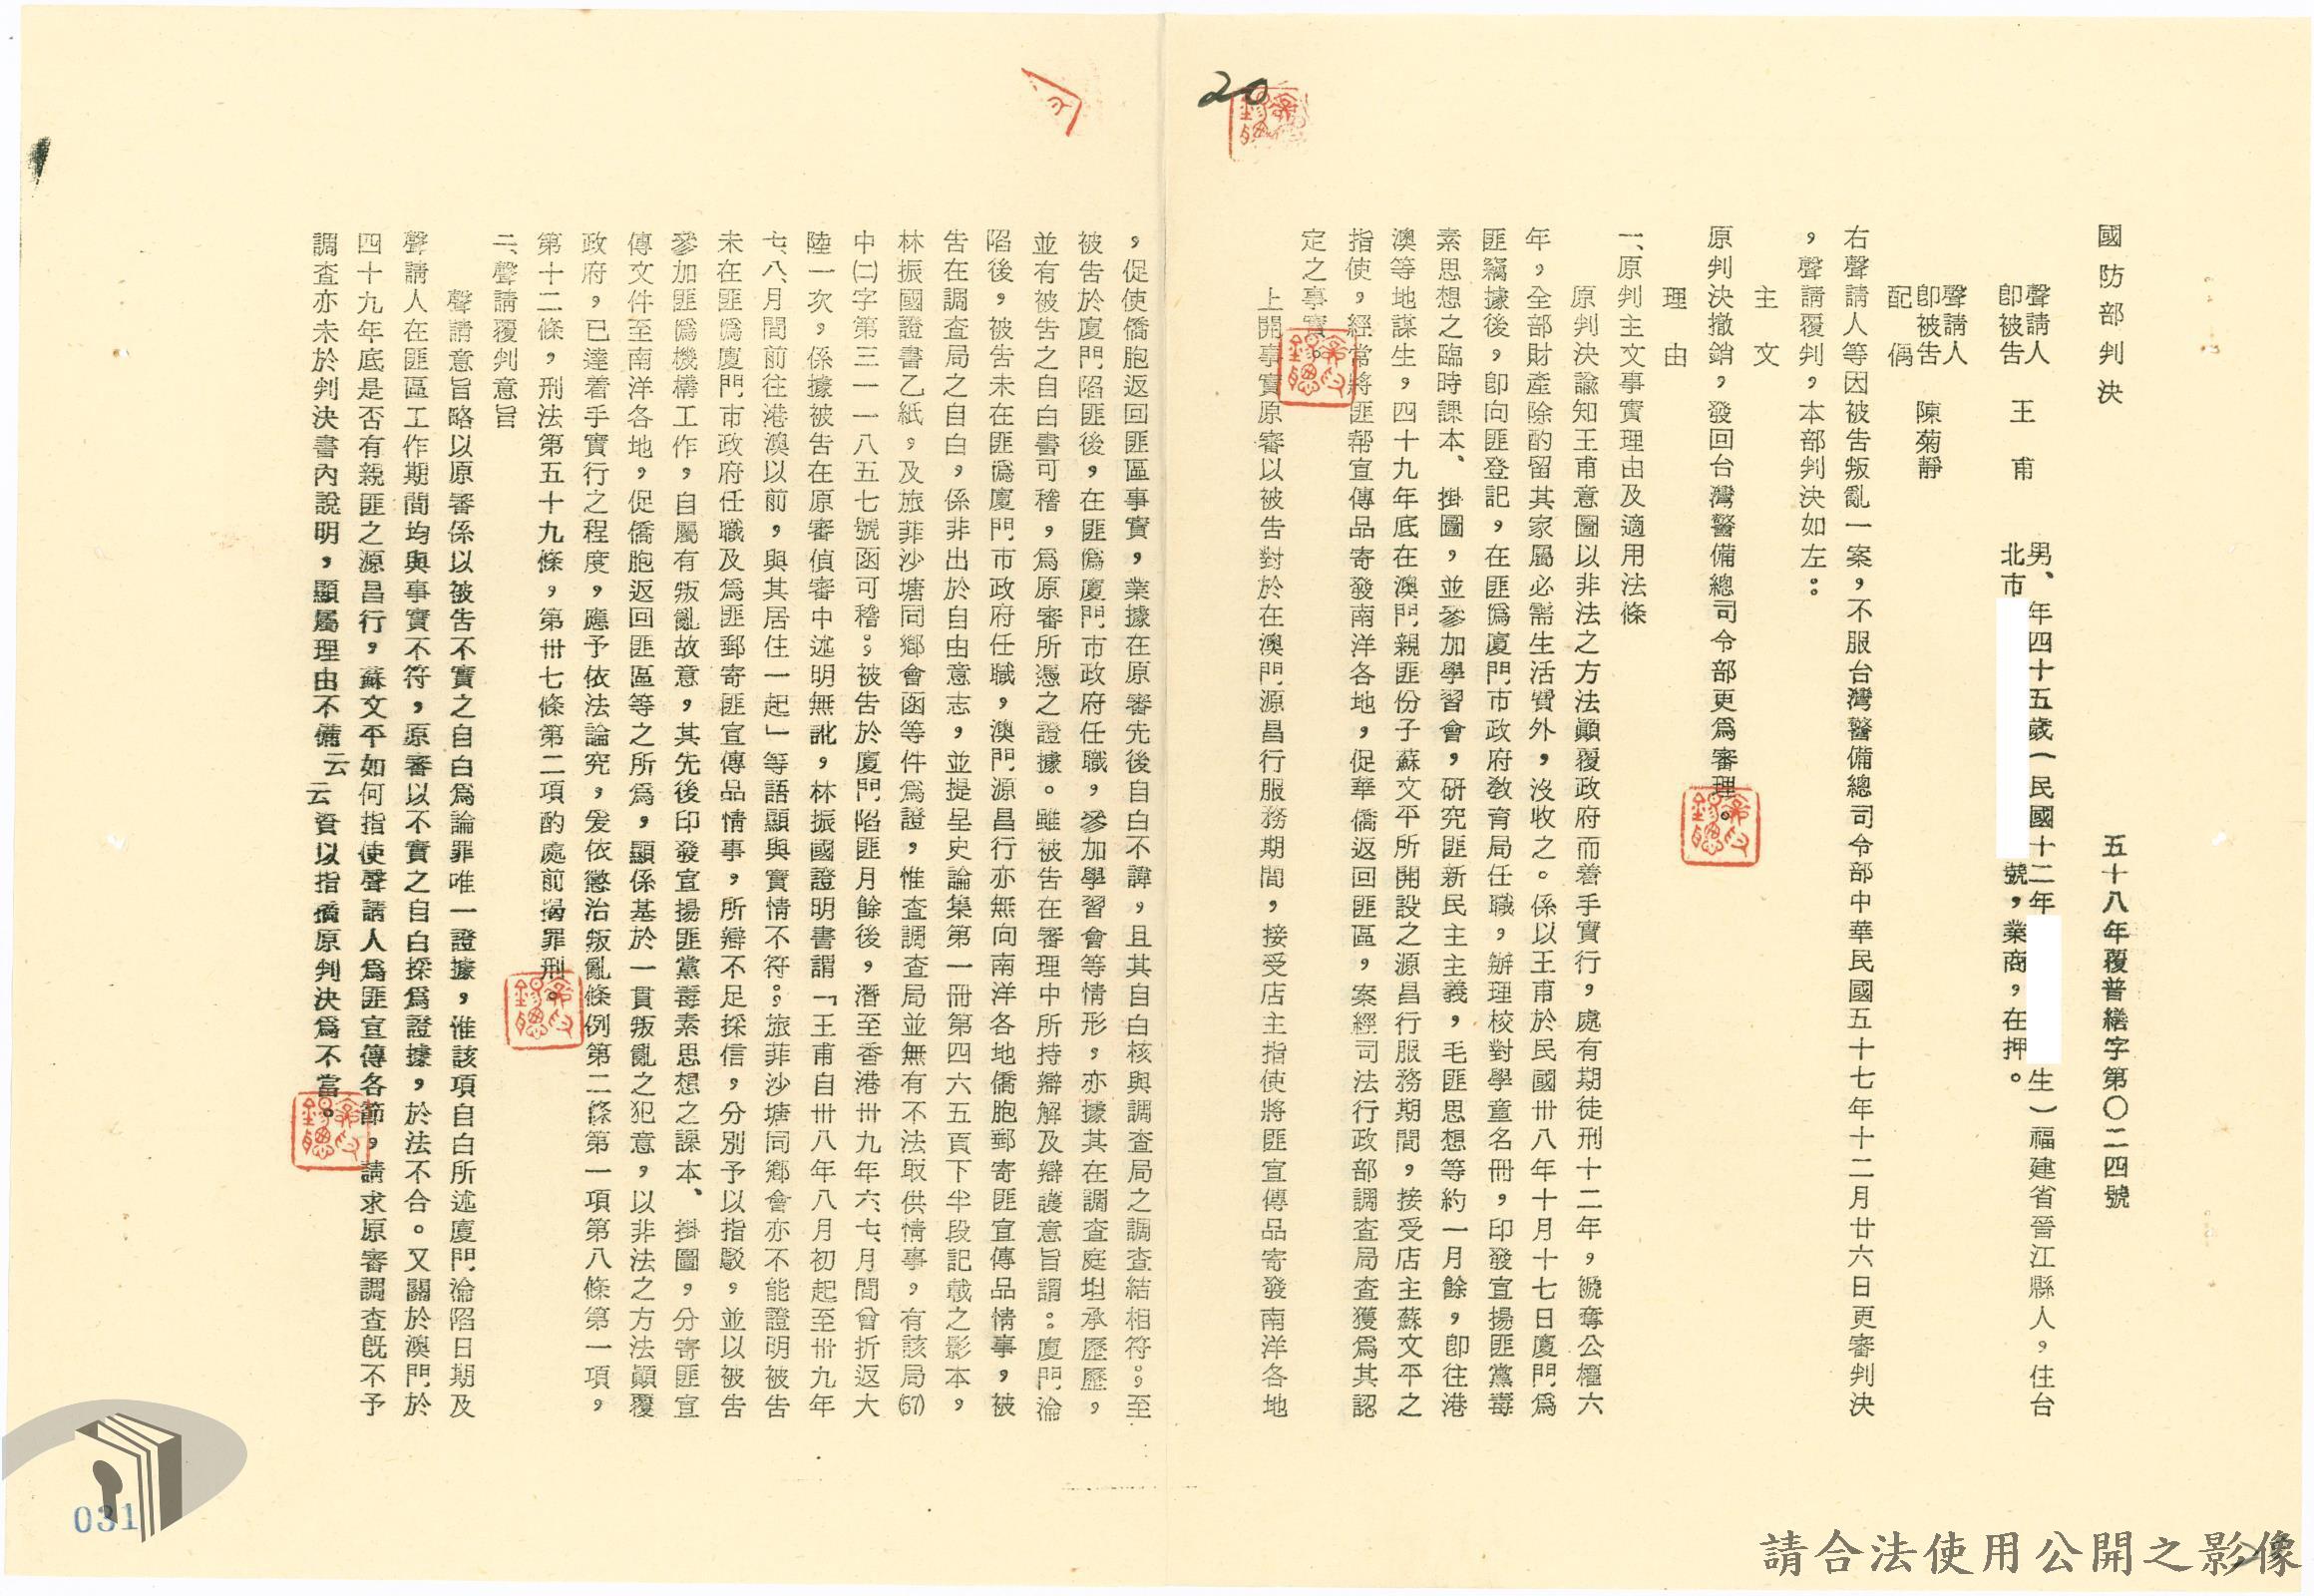 20
國防部判決
五十八年覆普繕字第〇二四號
聲請人
卽被告
王甫
男、年四十五歲(民國十二年
生)福建省晉江縣人，住台
北市
號，業商，在押。
聲請人
卽被告
配偶
陳菊靜
右聲請人等因被告叛亂一案，不服台灣警備總司令部中華民國五十七年十二月廿六日更審判決
，聲請覆判，本部判決如左：
主文
原判決撤銷，發回台灣警備總司令部更爲審理。
理由
一、原判主文事實理由及適用法條
原判決諭知王甫意圖以非法之方法顚覆政府而着手實行，處有期徒刑十二年，褫奪公權六
年，全部財產除酌留其家屬必需生活費外，沒收之。係以王甫於民國卅八年十月十七日廈門爲
匪竊據後，卽向匪登記，在匪僞廈門市政府敎育局任職，辦理校對學童名冊，印發宣揚匪黨毒
素思想之臨時課本、掛圖，並參加學習會，研究匪新民主主義，毛匪思想等約一月餘，卽往港
澳等地謀生，四十九年底在澳門親匪份子蘇文平所開設之源昌行服務期間，接受店主蘇文平之
指使，經常將匪幇宣傳品寄發南洋各地，促華僑返回匪區，案經司法行政部調查局查獲爲其認
定之事實。
上開事實原審以被告對於在澳門源昌行服務期間，接受店主指使將匪宣傳品寄發南洋各地
，促使僑胞返回匪區事實，業據在原審先後自白不諱，且其自白核與調查局之調查結相符。；至
被告於廈門陷匪後，在匪僞廈門市政府任職，參加學習會等情形，亦據其在調查庭坦承歷歷，
並有被告之自白書可稽，爲原審所憑之證據。雖被告在審理中所持辯解及辯護意旨謂：廈門淪
陷後，被告未在匪僞廈門市政府任職，澳門源昌行亦無向南洋各地僑胞郵寄匪宣傳品情事，被
告在調查局之自白，係非出於自由意志，並提呈史論集第一冊第四六五頁下半段記載之影本，
林振國證書乙紙，及旅菲沙塘同鄉會函等件爲證，惟查調查局並無有不法取供情事，有該局(57)
中㈡字第三一一八五七號函可稽。；被告於廈門陷匪月餘後，潛至香港卅九年六、七月間曾折返大
陸一次，係據被告在原審偵審中述明無訛，林振國證明書謂「王甫自卅八年八月初起至卅九年
七、八月間前往港澳以前，與其居住一起」等語顯與實情不符。；旅菲沙塘同鄉會亦不能證明被告
未在匪僞廈門市政府任職及爲匪郵寄匪宣傳品情事，所辯不足採信，分別予以指駁，並以被告
參加匪僞機構工作，自屬有叛亂故意，其先後印發宣揚匪黨毒素思想之課本、掛圖，分寄匪宣
傳文件至南洋各地，促僑胞返回匪區等之所爲，顯係基於一貫叛亂之犯意，以非法之方法顚覆
政府，已達着手實行之程度，應予依法論究，爰依懲治叛亂條例第二條第一項第八條第一項，
第十二條，刑法第五十九條，第卅七條第二項酌處前揭罪刑。
二、聲請覆判意旨
聲請意旨略以原審係以被告不實之自白爲論罪唯一證據，惟該項自白所述廈門淪陷日期及
聲請人在匪區工作期間均與事實不符，原審以不實之自白採爲證據，於法不合。又關於澳門於
四十九年底是否有親匪之源昌行，蘇文平如何指使聲請人爲匪宣傳各節，請求原審調查旣不予
調查亦未於判決書內說明，顯屬理由不備云云資以指摘原判決爲不當。
031
請合法使用公開之影像